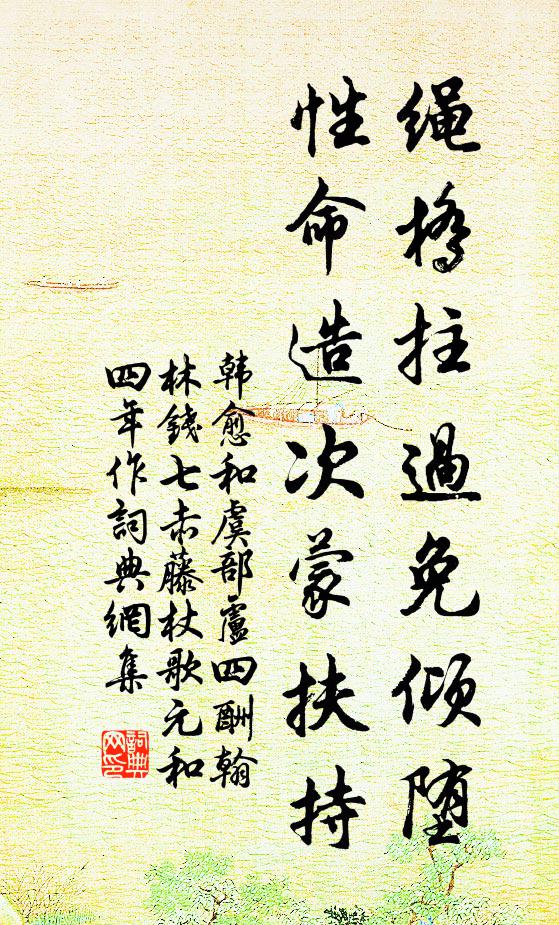 绳桥拄过免倾堕
性命造次蒙扶持
韩愈和虞部卢四酬翰
林錢七赤藤杖歌元和
四年作詞典網集
詞典
网印